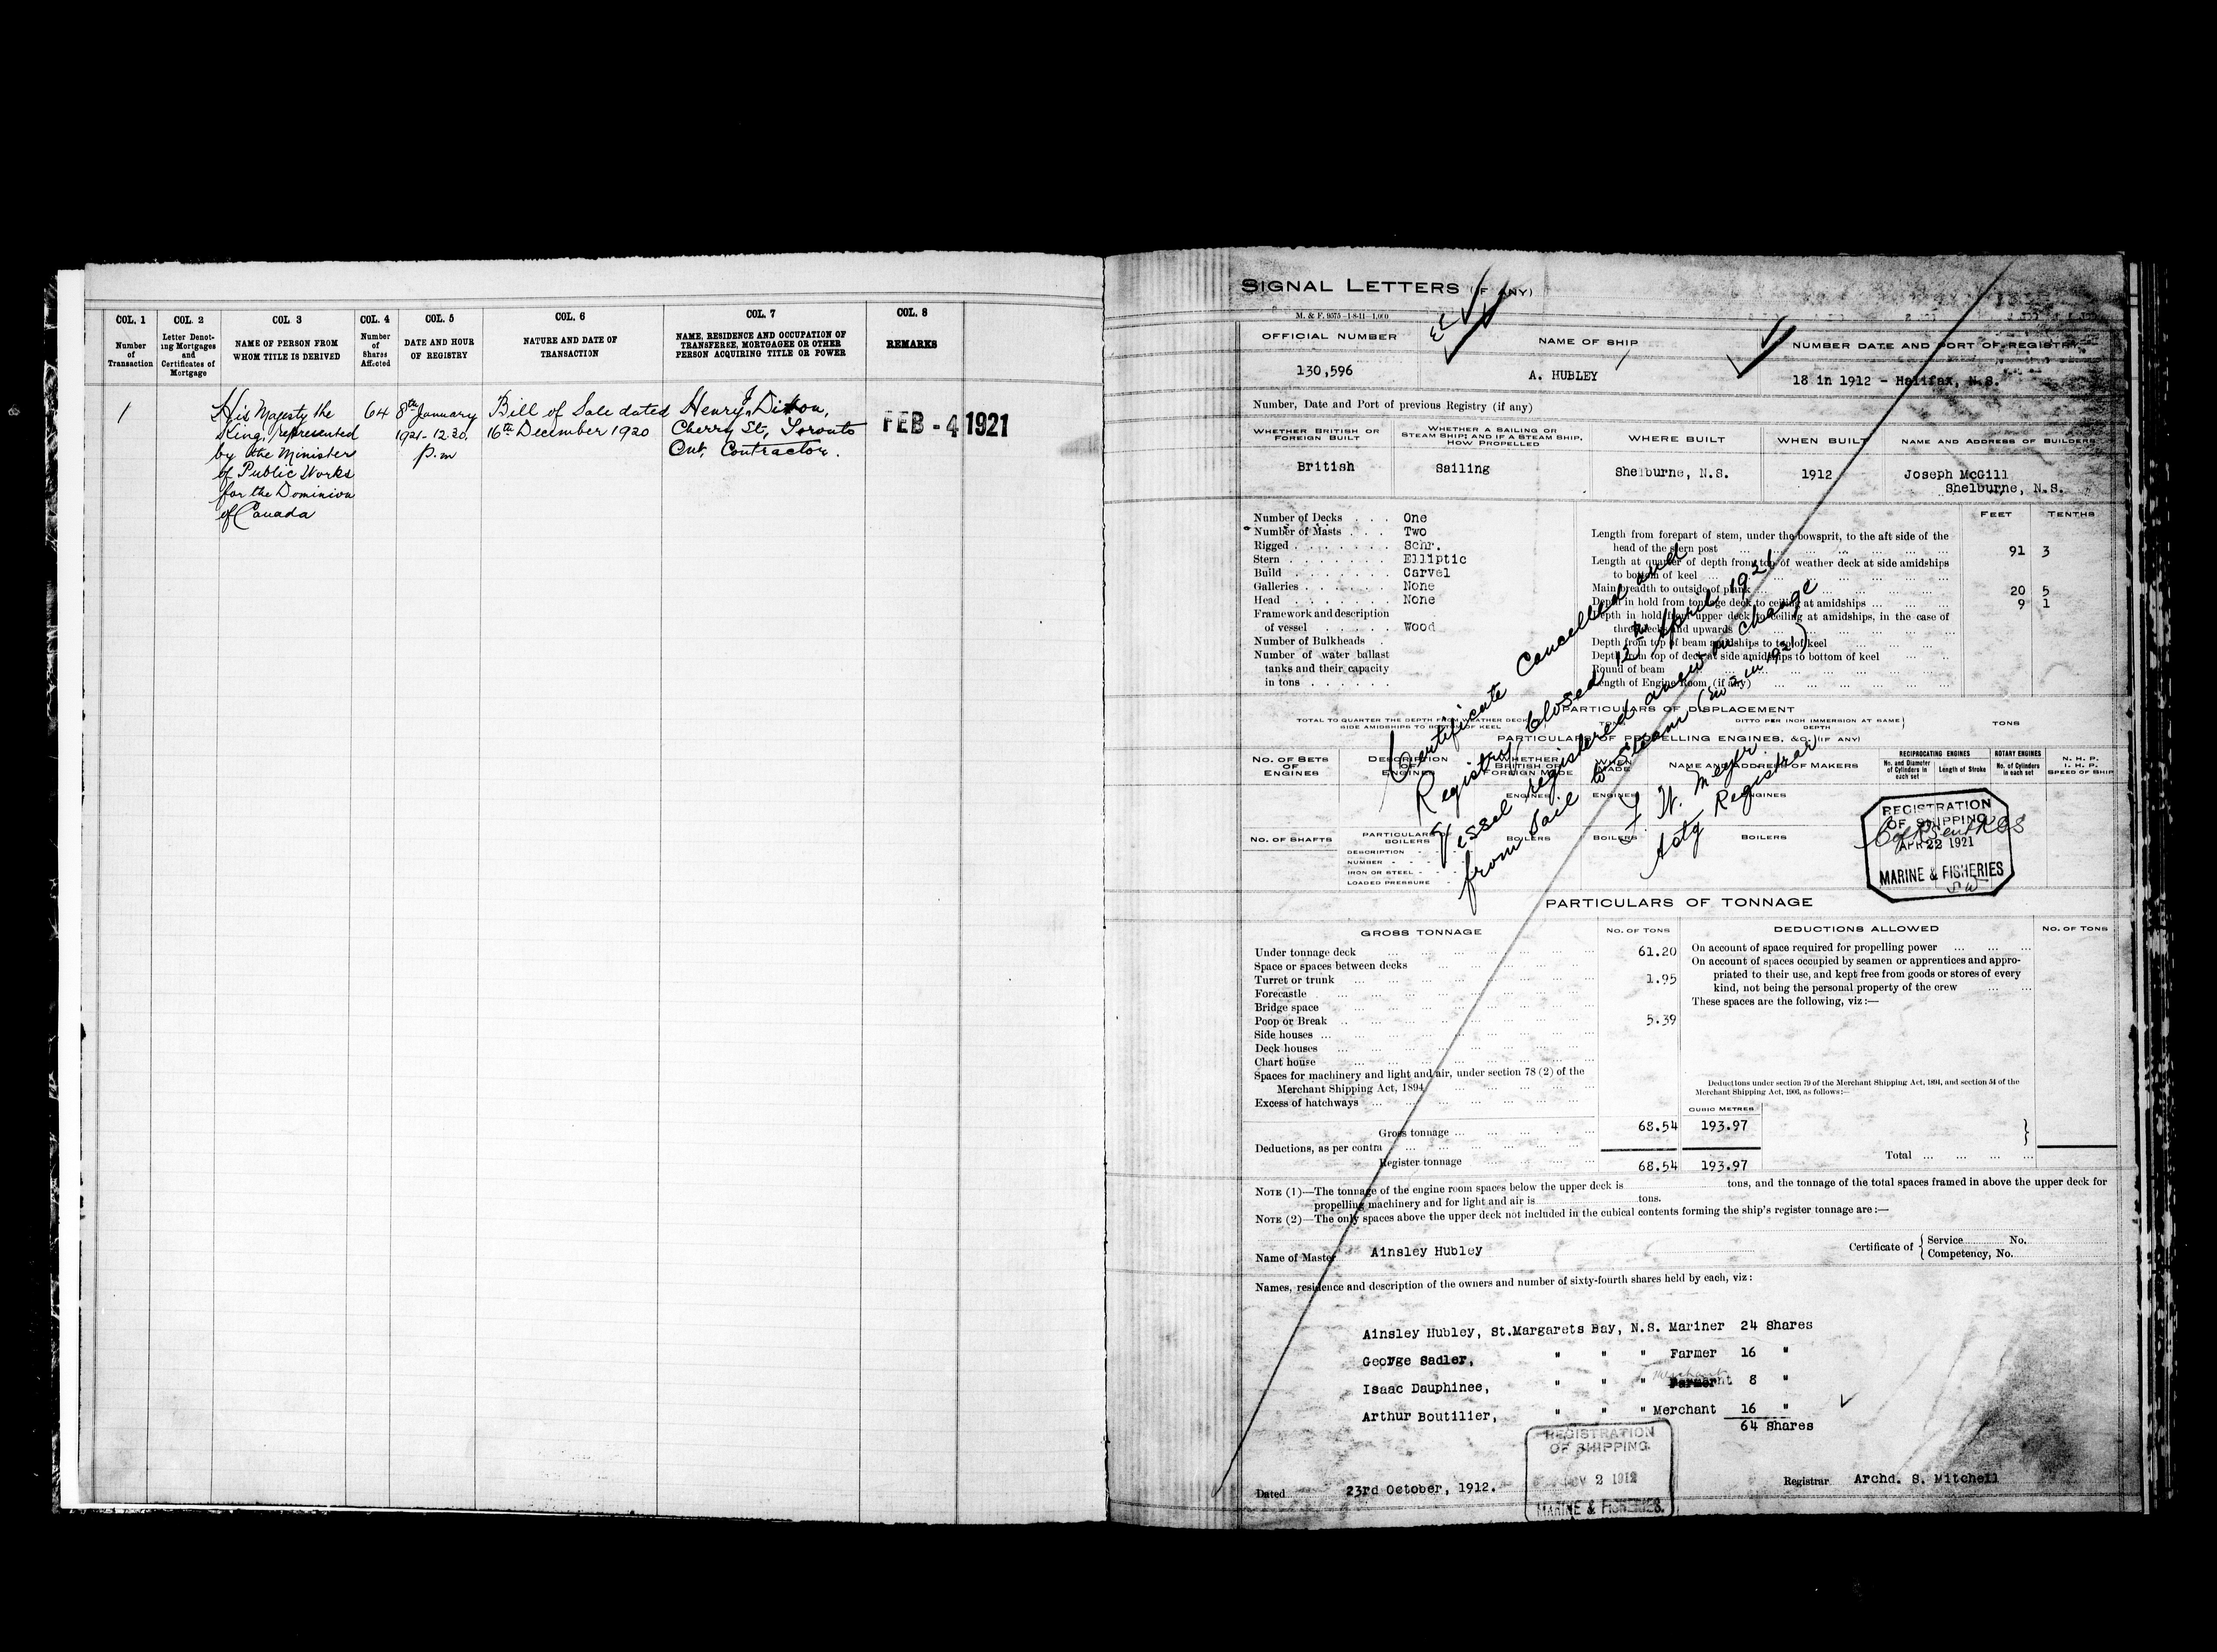 COL. 1
Number
of
Transaction
COL. 2
Letter Denot-
ing Mortgages
and
Certificates of
Mortgage
COL. 3
NAME OF PERSON FROM
WHOM TITLE IS DERIVED
COL. 4
Number
of
Shares
Affected
COL. 5
DATE AND HOUR
OF REGISTRY
COL. 6
NATURE AND DATE OF
TRANSACTION
COL. 7
NAME, RESIDENCE AND OCCUPATION OF
TRANSFEREE, MORTGAGEE OR OTHER
PERSON ACQUIRING TITLE OR POWER
COL. 8
REMARKS
1
His Majesty the
King, represented
by the Minister
of Public Works
for the Dominion
of Canada
64
8th January
1921 - 12.30.
p.m
Bill of Sale dated
16th December 1920
Henry J Dixon,
Cherry St, Toronto
Ont, Contractor.
FEB - 4 1921
SIGNAL LETTERS (IF ANY)
M. & F. 9575-1-8-11-1,000
OFFICIAL NUMBER
130,596
NAME OF SHIP
A. HUBLEY
NUMBER DATE AND PORT OF REGISTRY
18 in 1912 - Halifax, N.S.
Number, Date and Port of previous Registry (if any)
WHETHER BRITISH OR
FOREIGN BUILT
British
WHETHER A SAILING OR
STEAM SHIP; AND IF A STEAM SHIP,
HOW PROPELLED
Sailing
WHERE BUILT
Shelburne, N.S.
WHEN BUILT
1912
NAME AND ADDRESS OF BUILDERS
Joseph McGill
Shelburne, N.S.
Number of Decks . . . One
Number of Masts . . . Two
Rigged . . . . . . . Schr.
Stern . . . . . . . Elliptic
Build . . . . . . . Carvel
Galleries . . . . . . None
Head . . . . . . . None
Framework and description
of vessel . . . . . Wood
Number of Bulkheads .
Number of water ballast
tanks and their capacity
in tons . . . . . .
FEET TENTHS
Length from forepart of stem, under the bowsprit, to the aft side of the
head of the stern post 91 3
Length at quarter of depth from top of weather deck at side amidships
to bottom of keel
Main breadth to outside of plank 20 5
Depth in hold from tonnage deck to ceiling at amidships 9 1
Depth in hold from upper deck to ceiling at amidships, in the case of
three decks and upwards
Depth from top of beam amidships to top of keel
Depth from top of deck at side amidships to bottom of keel
Round of beam
Length of Engine Room (if any)
Certificate Cancelled and
Registry Closed 12th April 1921
Vessel registered anew on change
from Sail to Steam (No 5 in 1921)
Actg Registrar
PARTICULARS OF DISPLACEMENT
TOTAL TO QUARTER THE DEPTH FROM WEATHER DECK
SIDE AMIDSHIPS TO BOTTOM OF KEEL
TONS
DITTO PER INCH IMMERSION AT SAME
DEPTH
TONS
PARTICULARS OF PROPELLING ENGINES, &C. (IF ANY)
NO. OF SETS
OF
ENGINES
DESCRIPTION
OF
ENGINES
WHETHER
BRITISH OR
FOREIGN MADE
WHEN
MADE
NAME AND ADDRESS OF MAKERS
RECIPROCATING ENGINES
No. and Diameter
of Cylinders in
each set
Length of Stroke
ROTARY ENGINES
No. of Cylinders
in each set
N. H. P.
I. H. P.
SPEED OF SHIP
ENGINES
ENGINES
ENGINES
NO. OF SHAFTS
PARTICULARS OF
BOILERS
DESCRIPTION
NUMBER
IRON OR STEEL
LOADED PRESSURE
BOILERS
BOILERS
BOILERS
REGISTRATION
OF SHIPPING
APR 22 1921
MARINE & FISHERIES
PARTICULARS OF TONNAGE
GROSS TONNAGE
NO. OF TONS
DEDUCTIONS ALLOWED
NO. OF TONS
Under tonnage deck 61.20
Space or spaces between decks
Turret or trunk 1.95
Forecastle
Bridge space
Poop or Break 5.39
Side houses
Deck houses
Chart house
Spaces for machinery and light and air, under section 78 (2) of the
Merchant Shipping Act, 1894
Excess of hatchways
On account of space required for propelling power
On account of spaces occupied by seamen or apprentices and appro-
priated to their use, and kept free from goods or stores of every
kind, not being the personal property of the crew
These spaces are the following, viz:—
Deductions under section 79 of the Merchant Shipping Act, 1894, and section 54 of the
Merchant Shipping Act, 1906, as follows:—
CUBIC METRES
Gross tonnage 68.54 193.97
Deductions, as per contra
Register tonnage 68.54 193.97
Total
NOTE (1)—The tonnage of the engine room spaces below the upper deck is tons, and the tonnage of the total spaces framed in above the upper deck for
propelling machinery and for light and air is tons.
NOTE (2)—The only spaces above the upper deck not included in the cubical contents forming the ship's register tonnage are:—
Name of Master Ainsley Hubley
Certificate of { Service No.
Competency, No.
Names, residence and description of the owners and number of sixty-fourth shares held by each, viz:
Ainsley Hubley, St.Margarets Bay, N.S. Mariner 24 Shares
George Sadler, " " " Farmer 16 "
Isaac Dauphinee, " " " Merchant 8 "
Arthur Boutilier, " " " Merchant 16 "
64 Shares
REGISTRATION
OF SHIPPING
NOV 2 1912
MARINE & FISHERIES.
Dated 23rd October, 1912.
Registrar Archd. S. Mitchell